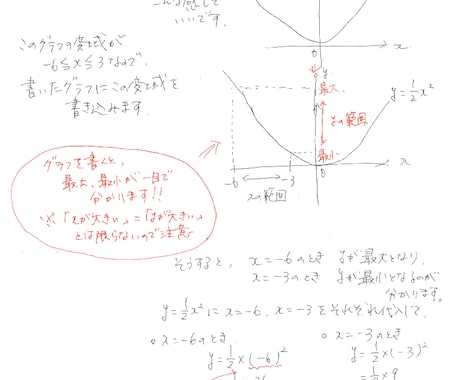 いいです。
O
x
このグラフの変域が
-6≦x≦3なので、
書いたグラフにこの変域を
書き込みます。
y
最大
y=1/2x²
yの範囲
最小
-6
-3
O
x
xの範囲
グラフを書くと、
最大、最小が一目で
分かります!!
※「xが大きい」=「yが大きい」
とは限らないので注意
そうすると、x=-6のとき yが最大となり、
x=-3のとき yが最小となるのが
分かります。
y=1/2x²にx=-6、x=-3をそれぞれ代入して、
○x=-6のとき
y=1/2×(-6)²
○x=-3のとき
y=1/2×(-3)²
=1/2×9